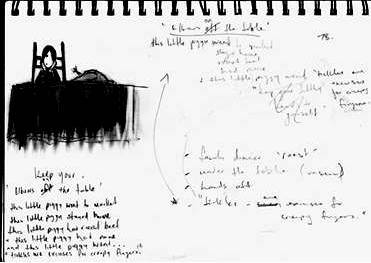 "Elbows off the table."
this little piggy went to market
stayed home
roast beef
had none
& this little piggy went "tickles are
excuses
for creepy
fingers"
Keep your
'Elbows off the table'
this little piggy went to market
this little piggy stayed home
this little piggy had roast beef
this little piggy had none
and this little piggy went...
"tickles are excuses for creepy fingers."
- family dinner "roast"
- under the table
- hands off
- "tickles - excuses for
creepy fingers."